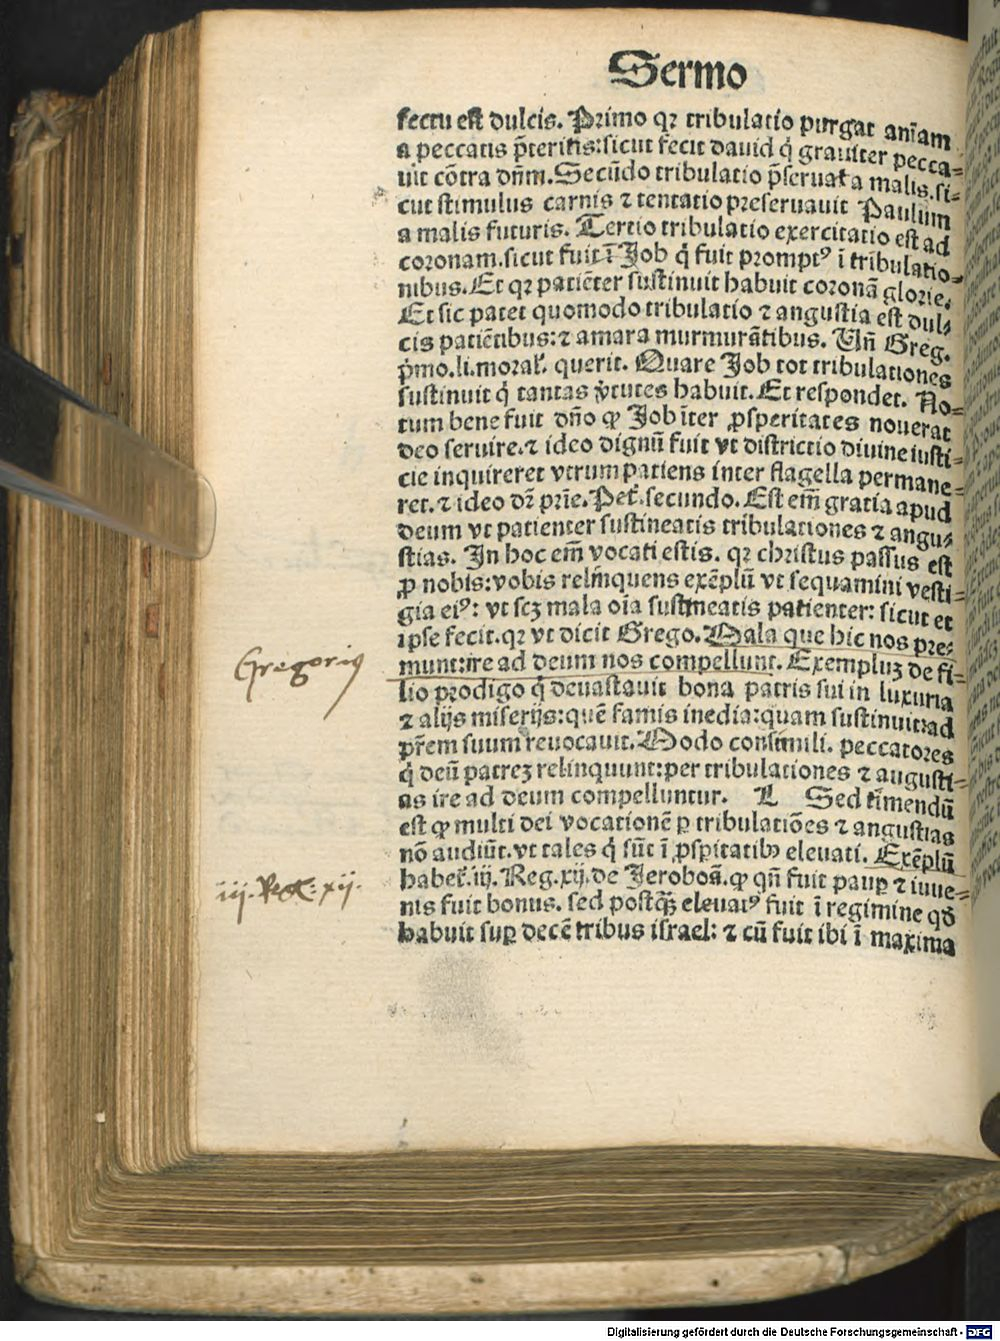 Sermo
fectu est dulcis. Primo qꝛ tribulatio purgat aĩam
a peccatis p̃teritis: sicut fecit dauid q̇ grauiter pecca⸗
uit cõtra dñm. Secũdo tribulatio p̃seruat a malis. si⸗
cut stimulus carnis ⁊ tentatio preseruauit Paulum
a malis futuris. Tertio tribulatio exercitatio est ad
coronam. sicut fuit ĩ Job q̇ fuit promptꝰ ĩ tribulatio⸗
nibus. Et qꝛ patiẽter sustinuit habuit coronã glorie.
Et sic patet quomodo tribulatio ⁊ angustia est dul⸗
cis patiẽtibus: ⁊ amara murmurãtibus. Uñ Greg.
p̃mo. li. moraƚ. querit. Quare Job tot tribulationes
sustinuit q̇ tantas v̓tutes habuit. Et respondet. No⸗
tum bene fuit dño ꝙ Job ĩter ꝓsperitates nouerat
deo seruire. ⁊ ideo dignũ fuit vt districtio diuine iusti⸗
cie inquireret vtrum patiens inter flagella permane⸗
ret. ⁊ ideo dꝛ prĩe. Peƚ. secundo. Est em̃ gratia apud
deum vt patienter sustineatis tribulationes ⁊ angu⸗
stias. In hoc em̃ vocati estis. qꝛ christus passus est
ꝓ nobis: vobis relinquens exẽplũ vt sequamini vesti⸗
gia eiꝰ: vt scꝫ mala oĩa sustineatis patienter: sicut et
ipse fecit. qꝛ vt dicit Grego. Mala que hic nos pre⸗
munt: ire ad deum nos compellunt. Exempluꝫ de fi⸗
lio prodigo q̇ deuastauit bona patris sui in luxuria
⁊ alijs miserijs: quẽ famis inedia: quam sustinuit: ad
pr̃em suum reuocauit. Modo consimili. peccatores
q̇ deũ patreꝫ relinquunt: per tribulationes ⁊ angusti⸗
as ire ad deum compelluntur. L Sed timendũ
est ꝙ multi dei vocationẽ ꝑ tribulatiões ⁊ angustias
nõ audiũt. vt tales q̇ sũt ĩ ꝓsꝑitatibꝰ eleuati. Exẽplũ
habet̃. iij. Reg. xij. de Jeroboã. ꝙ qñ fuit pauꝑ ⁊ iuue⸗
nis fuit bonus. sed postq̃ꝫ eleuatꝰ fuit ĩ regimine qđ
habuit suꝑ decẽ tribus israel: ⁊ cũ fuit ibi ĩ maxima
Gregorius
iij. Reg: xij.
Digitalisierung gefördert durch die Deutsche Forschungsgemeinschaft - DFG